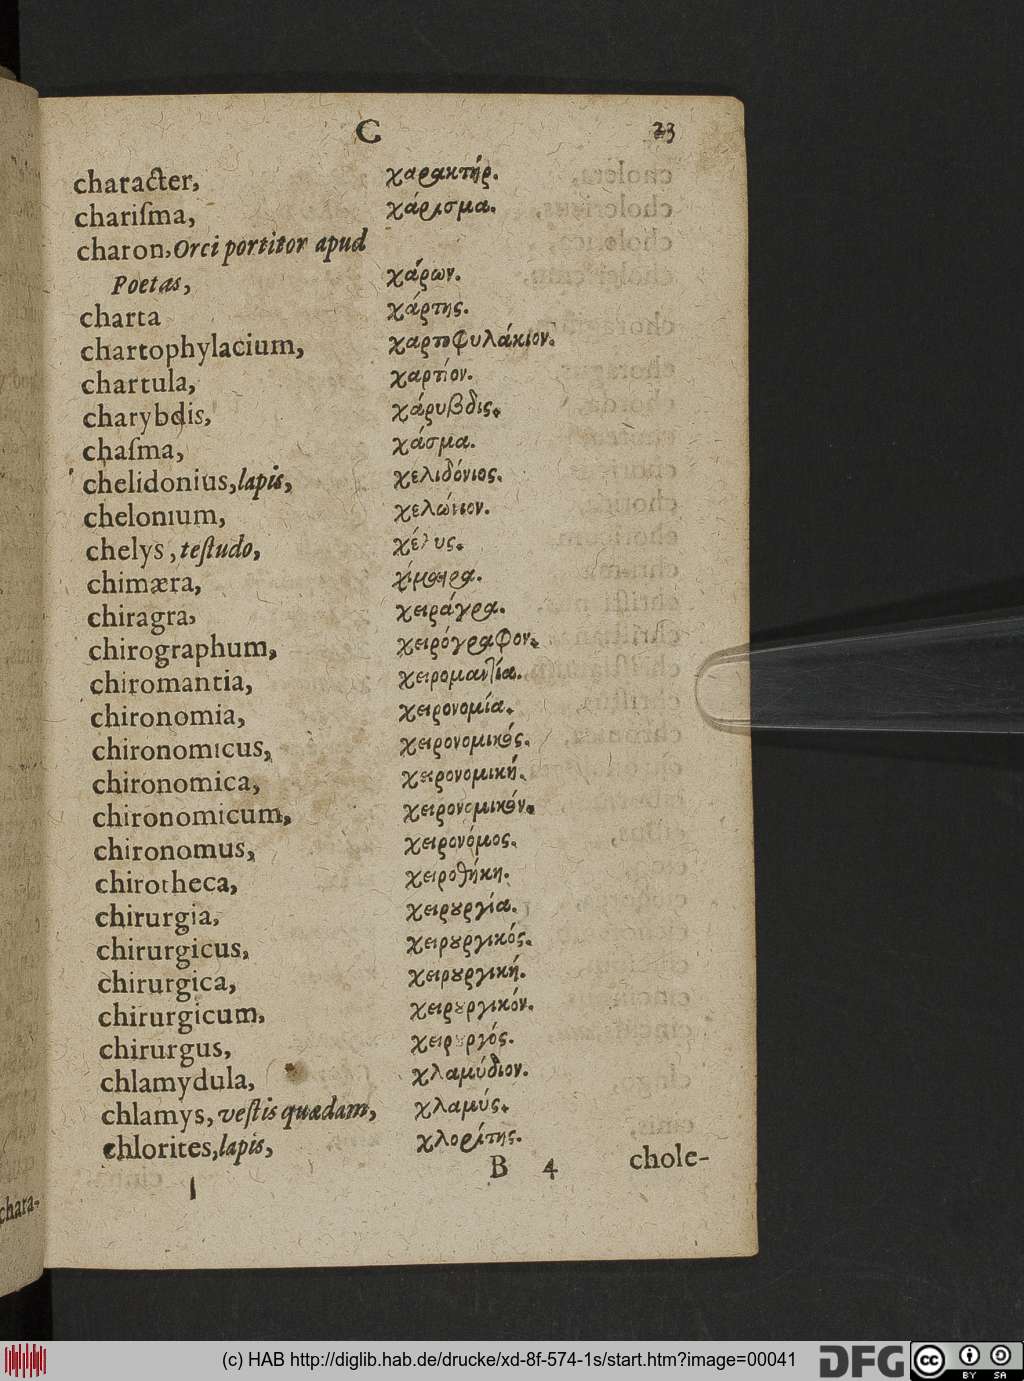 C 23
character, χαρακτήρ.
chariſma, χάρισμα.
charon, Orci portitor apud
Poetas, χάρων.
charta χάρτης.
chartophylacium, χαρτοφυλάκιον.
chartula, χαρτίον.
charybdis, χάρυβδις.
chaſma, χάσμα.
chelidonius, lapis, χελιδόνιος.
chelonium, χελώνιον.
chelys, teſtudo, χέλυς.
chimæra, χίμαιρα.
chiragra, χειράγρα.
chirographum, χειρόγραφον.
chiromantia, χειρομαντία.
chironomia, χειρονομία.
chironomicus, χειρονομικός.
chironomica, χειρονομική.
chironomicum, χειρονομικόν.
chironomus, χειρονόμος.
chirotheca, χειροθήκη.
chirurgia, χειρȣργία.
chirurgicus, χειρȣργικός.
chirurgica, χειρȣργική.
chirurgicum, χειρȣργικόν.
chirurgus, χειρȣργός.
chlamydula, χλαμύδιον.
chlamys, veſtis quædam, χλαμύς.
chlorites, lapis, χλορίτης.
B 4 chole-
chara-
(c) HAB http://diglib.hab.de/drucke/xd-8f-574-1s/start.htm?image=00041
DFG cc BY SA